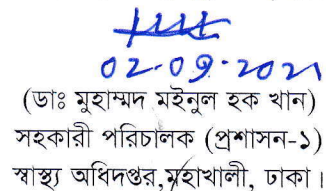 02-09-2021
(ডাঃ মুহাম্মদ মইনুল হক খান)
সহকারী পরিচালক (প্রশাসন-১)
স্বাস্থ্য অধিদপ্তর,মহাখালী, ঢাকা।